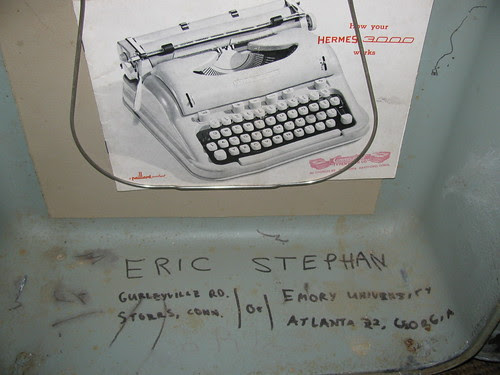 How your
HERMES 3000
works
a paillard product
ERIC STEPHAN
GURLEYVILLE RD.
STORRS, CONN.
OR
EMORY UNIVERSITY
ATLANTA 22, GEORGIA